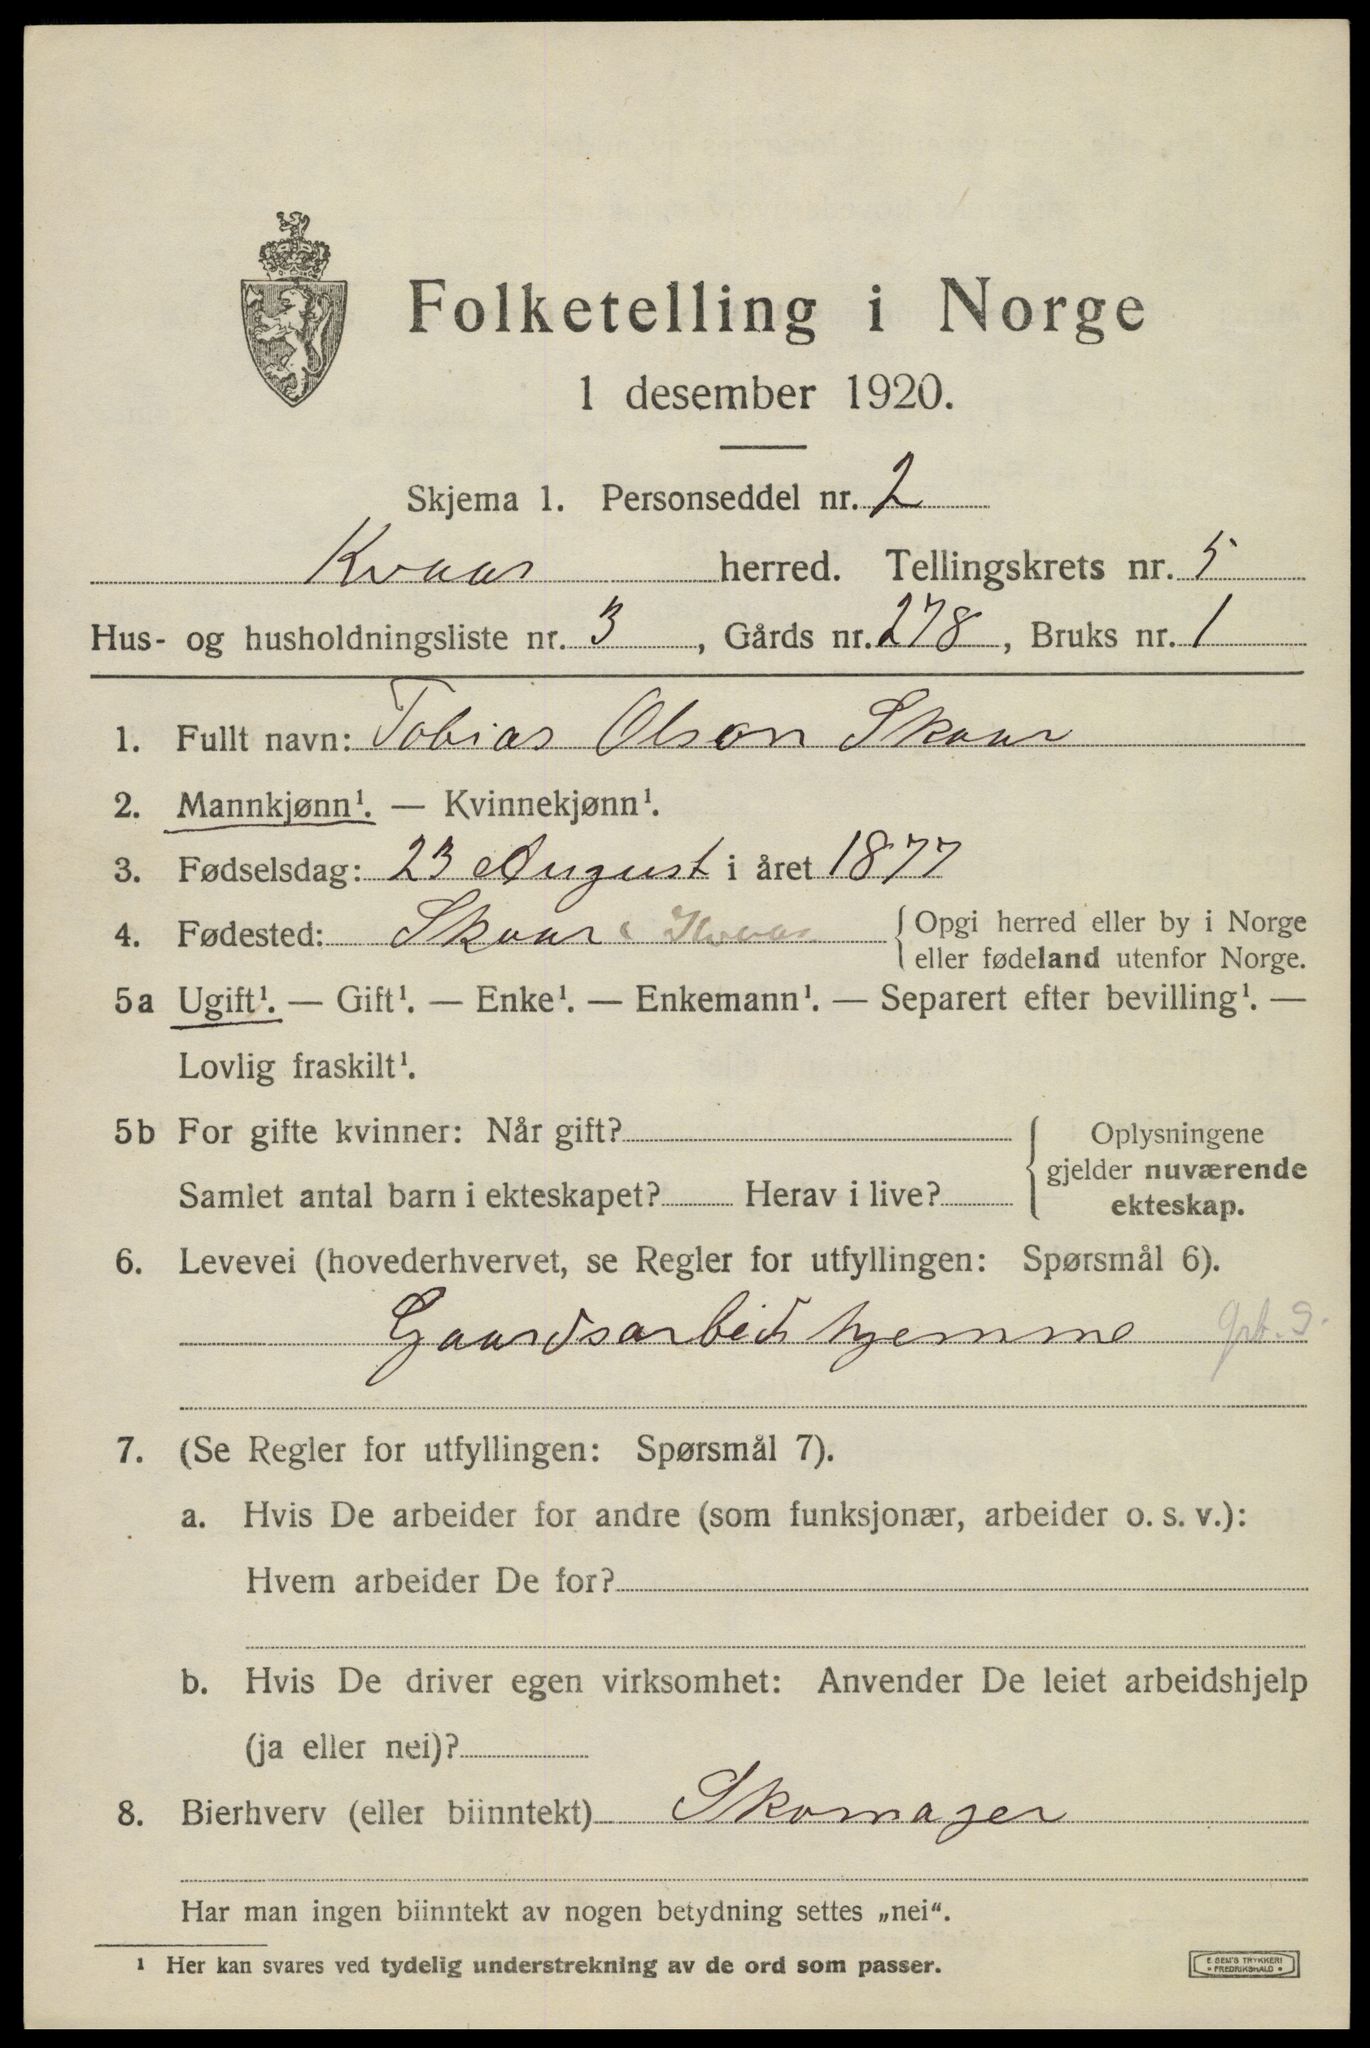 Folketelling i Norge
1 desember 1920.
Skjema 1. Personseddel nr. 2
Kvaas herred. Tellingskrets nr. 5
Hus- og husholdningsliste nr. 3, Gårds nr. 278, Bruks nr. 1
1. Fullt navn: Tobias Olson Skaar
2. Mannkjønn¹. — Kvinnekjønn¹.
3. Fødselsdag: 23 August i året 1877
4. Fødested: Skaar i Kvaas { Opgi herred eller by i Norge
eller fødeland utenfor Norge.
5a Ugift¹. — Gift¹. — Enke¹. — Enkemann¹. — Separert efter bevilling¹. —
Lovlig fraskilt¹.
5b For gifte kvinner: Når gift? { Oplysningene
gjelder nuværende
Samlet antal barn i ekteskapet? Herav i live? ekteskap.
6. Levevei (hovederhvervet, se Regler for utfyllingen: Spørsmål 6).
Gaardsarbeid hjemme
7. (Se Regler for utfyllingen: Spørsmål 7).
a. Hvis De arbeider for andre (som funksjonær, arbeider o. s. v.):
Hvem arbeider De for?
b. Hvis De driver egen virksomhet: Anvender De leiet arbeidshjelp
(ja eller nei)?
8. Bierhverv (eller biinntekt) Skomager
Har man ingen biinntekt av nogen betydning settes „nei“.
¹ Her kan svares ved tydelig understrekning av de ord som passer.
E. SEM'S TRYKKERI
• FREDRIKSHALD •